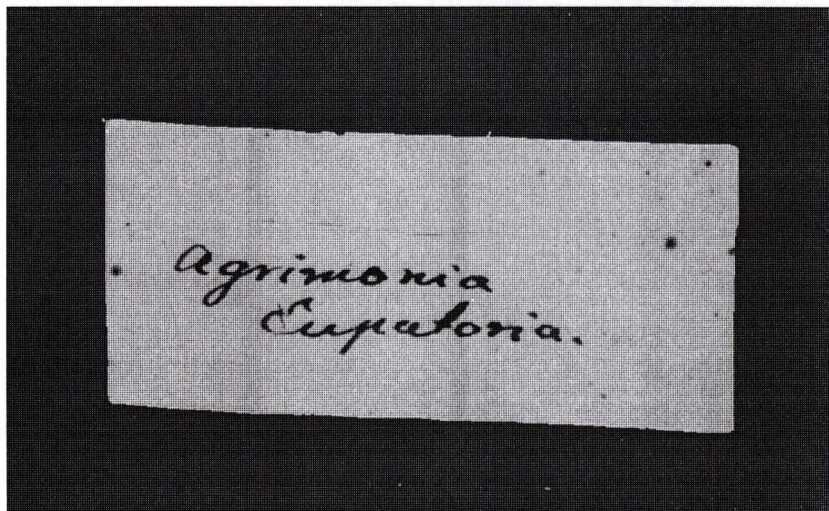 Agrimonia
Eupatoria.